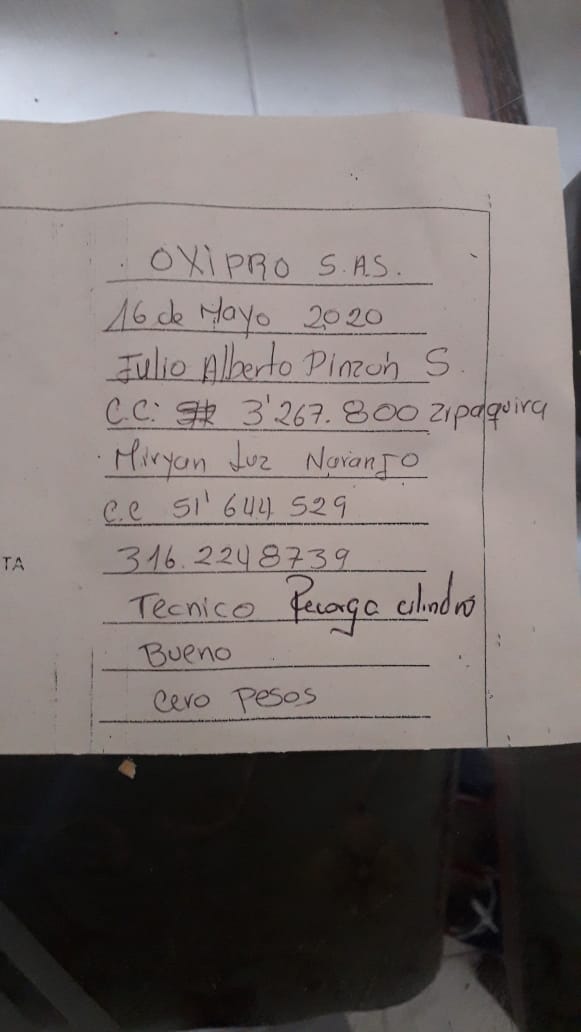 OXIPRO S.A.S.
16 de Mayo 2020
Julio Alberto Pinzón S.
C.C. 3'267.800 Zipaquira
Miryan Luz Naranjo
C.C 51'644 529
TA
316.2248739
Tecnico Recarga cilindro
Bueno
Cero Pesos